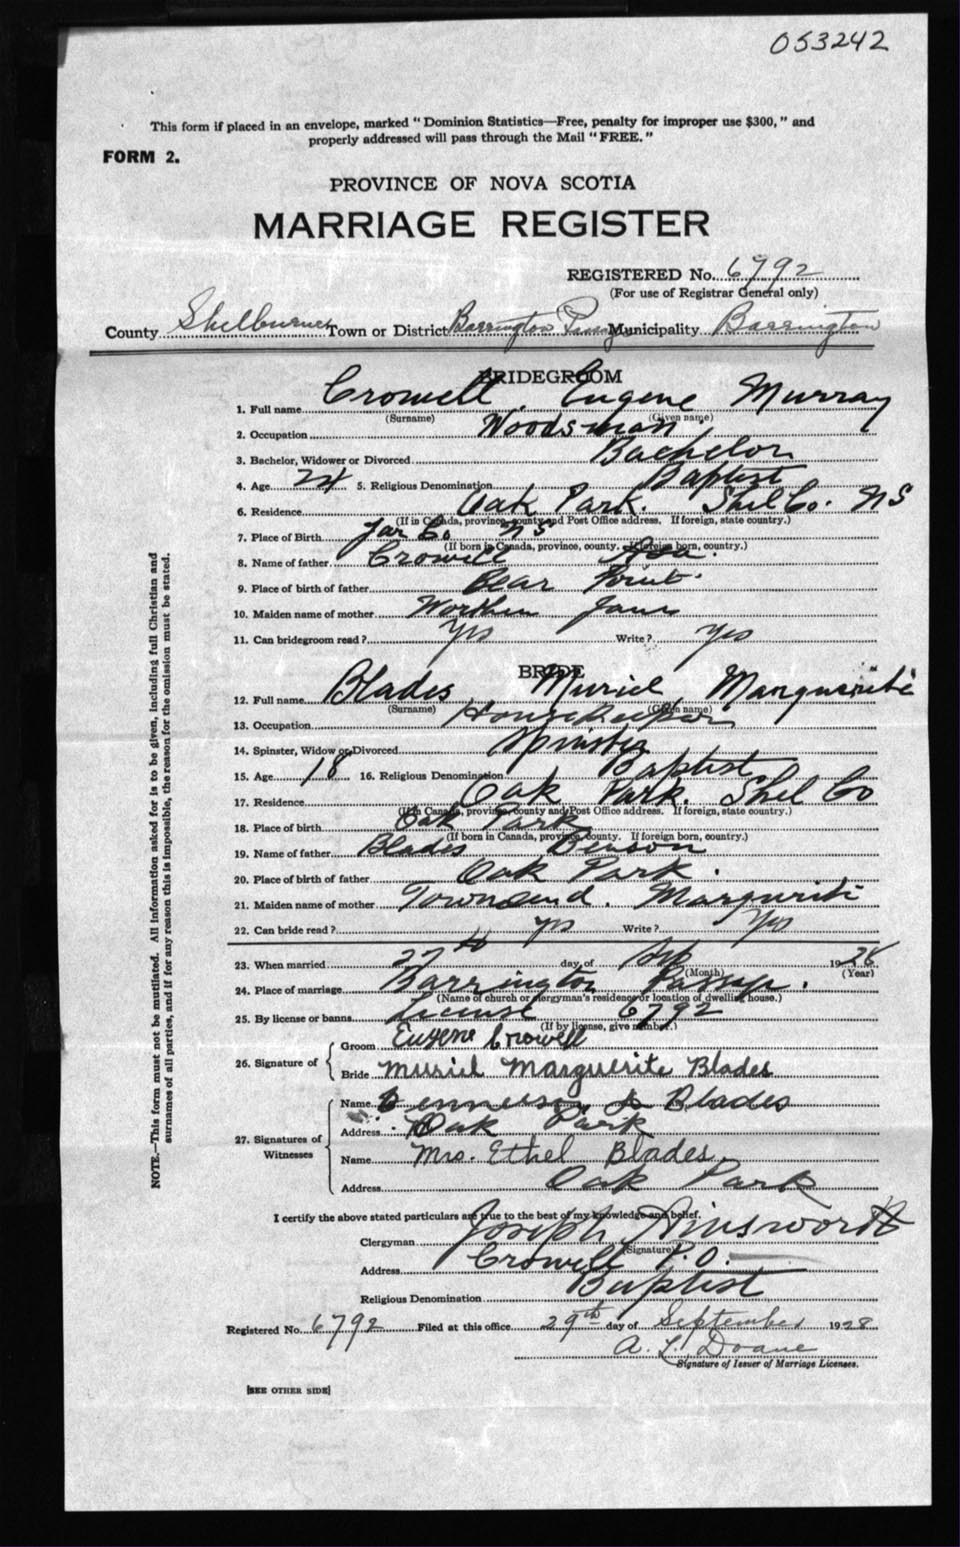 053242
This form if placed in an envelope, marked "Dominion Statistics—Free, penalty for improper use $300," and
properly addressed will pass through the Mail "FREE."
FORM 2.
PROVINCE OF NOVA SCOTIA
MARRIAGE REGISTER
REGISTERED No. 6792
(For use of Registrar General only)
County Shelburne Town or District Barrington Passage Municipality Barrington
BRIDEGROOM
1. Full name Crowell Eugene Murray
(Surname) (Given name)
2. Occupation Woodsman
3. Bachelor, Widower or Divorced Bachelor
4. Age 24 5. Religious Denomination Baptist
6. Residence Oak Park. Shel Co. NS
(If in Canada, province, county and Post Office address. If foreign, state country.)
7. Place of Birth Yar Co NS
(If born in Canada, province, county. If foreign born, country.)
8. Name of father Crowell
9. Place of birth of father Bear Point.
10. Maiden name of mother Worthen Jane
11. Can bridegroom read? Yes Write? Yes
BRIDE
12. Full name Blades Muriel Marguerite
(Surname) (Given name)
13. Occupation Housekeeper
14. Spinster, Widow or Divorced Spinster
15. Age 18 16. Religious Denomination Baptist
17. Residence Oak Park. Shel Co
(If in Canada, province, county and Post Office address. If foreign, state country.)
18. Place of birth Oak Park
(If born in Canada, province, county. If foreign born, country.)
19. Name of father Blades Benson
20. Place of birth of father Oak Park.
21. Maiden name of mother Townsend. Margurite
22. Can bride read? Yes Write? Yes
23. When married 27th day of Sep 1928
(Month) (Year)
24. Place of marriage Barrington Passage.
(Name of church or clergyman's residence or location of dwelling house.)
25. By license or banns License 6792
(If by license, give number.)
26. Signature of
Groom Eugene Crowell
Bride Muriel Marguerite Blades
27. Signatures of Witnesses
Name Blades
Address Oak Park
Name Mrs. Ethel Blades
Address Oak Park
I certify the above stated particulars are true to the best of my knowledge and belief.
Clergyman Joseph Winsworth
(Signature)
Address Crowell P.O.
Religious Denomination Baptist
Registered No. 6792 Filed at this office 29th day of September 1928
A. L. Doane
Signature of Issuer of Marriage Licenses.
[SEE OTHER SIDE]
NOTE.—This form must not be mutilated. All information asked for is to be given, including full Christian and
surnames of all parties, and if for any reason this is impossible, the reason for the omission must be stated.